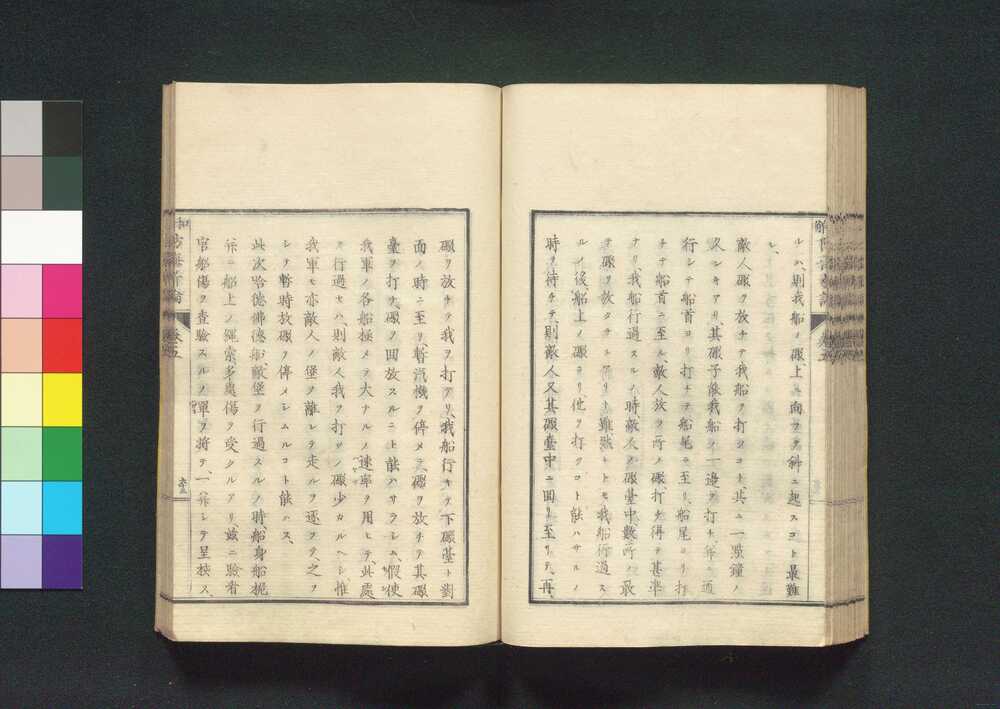 ルハ、則我船ノ礟上ニ向フテ斜ニ起スコト最難
シ、
敵人礟ヲ放チテ我船ヲ打ツコト、其ニ一點鐘ノ
久シキアリ、其礟子儘我船ノ一邊ヲ打チ、
行シテ船首ヨリ打チテ船尾ニ至リ、船尾ヨリ打
チテ船首ニ至ル、敵人放ツ所ノ礟打チ得テ甚準
ナリ我船行過スルノ時敵人ノ礟臺中數所ノ最
礟ヲ放タ 雖然トモ我船行過ス
ルノ後船上ノ礟ヨリ他ヲ打ツコト能ハサルノ
時ヲ待チテ、則敵人又其礟臺中ニ回リ至リテ、再
礟ヲ放チテ我ヲ打テリ、我船行キテ下礟臺ト對
面ノ時ニ至リ、暫汽機ヲ停メテ、礟ヲ放チテ其礟
臺ヲ打チ、礟ヲ回放スルニト能ハサラシム、假使
我軍ノ各船極メテ大ナルノ速率ヲ用ヒテ、此處
ヲ行過セハ、則敵人我ヲ打ツノ礟少カルヘシ惟
我軍モ亦敵人ノ堡ヲ離レテ走ルヲ逐フテ、之ヲ
シテ暫時放礟ヲ停メシムルコト能ハス、
此次哈德佛德船敵堡ヲ行過スルノ時、船身船桅
竝ニ船上ノ繩索、多奧傷ヲ受クルアリ茲ニ驗看
官船傷ヲ查驗スルノ單ヲ將テ、一竝シテ呈挾ス、
防海新論 卷五